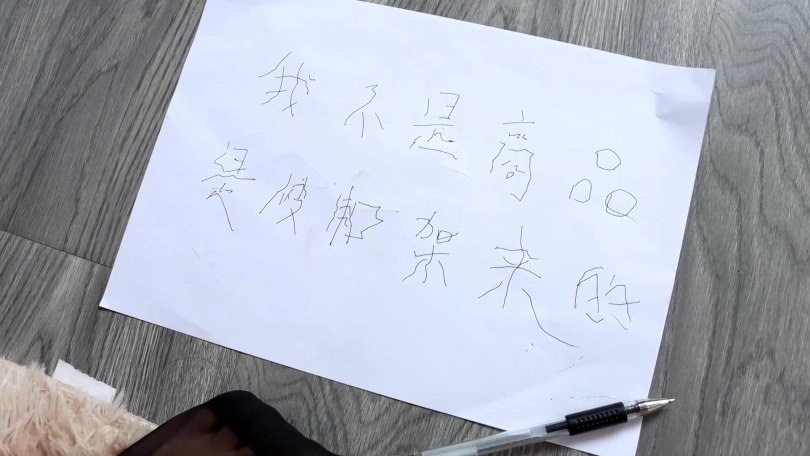 我不是商品
是被绑架来的